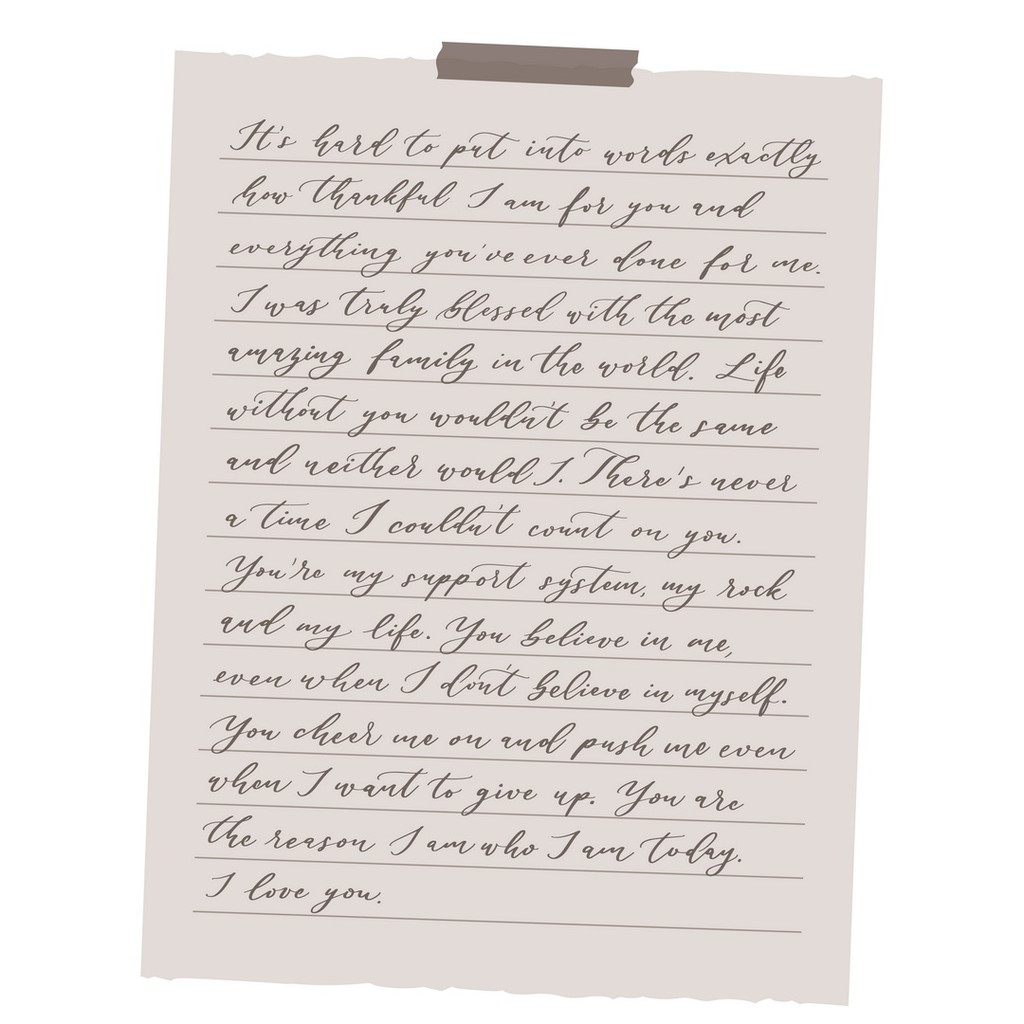 It's hard to put into words exactly
how thankful I am for you and
everything you've ever done for me.
I was truly blessed with the most
amazing family in the world. Life
without you wouldn't be the same
and neither would I. There's never
a time I couldn't count on you.
You're my support system, my rock
and my life. You believe in me,
even when I don't believe in myself.
You cheer me on and push me even
when I want to give up. You are
the reason I am who I am today.
I love you.